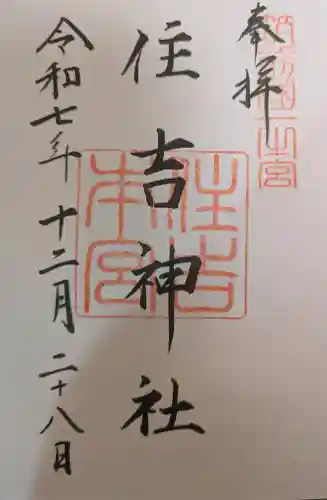 奉拝
筑前國一之宮
住吉神社
住吉本宮
令和七年 十二月 二十八日